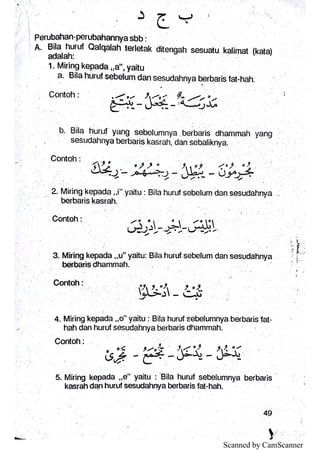 ب ج د
Perubahan-perubahannya sbb :
A. Bila huruf Qalqalah terletak ditengah sesuatu kalimat (kata)
adalah:
1. Miring kepada „a", yaitu
a. Bila huruf sebelum dan sesudahnya berbaris fat-hah.
Contoh :
مَدْرَسَةٌ - يَجْعَلُ - يَبْتَغِ
b. Bila huruf yang sebelumnya berbaris dhammah yang
sesudahnya berbaris kasrah, dan sebaliknya.
Contoh :
مُجْرِمُوْنَ - يُبْطِلُ -
2. Miring kepada „i" yaitu : Bila huruf sebelum dan sesudahnya
berbaris kasrah.
Contoh :
اِبْلِيْسَ - اِجْرِ - اِدْرِيْسَ
3. Miring kepada „u" yaitu: Bila huruf sebelum dan sesudahnya
berbaris dhammah.
Contoh :
تُبْتُ - اُدْخُلُوْا
4. Miring kepada „o" yaitu : Bila huruf sebelumnya berbaris fat-
hah dan huruf sesudahnya berbaris dhammah.
Contoh :
يَدْخُلُ -
5. Miring kepada „e" yaitu : Bila huruf sebelumnya berbaris
kasrah dan huruf sesudahnya berbaris fat-hah.
49
Scanned by CamScanner